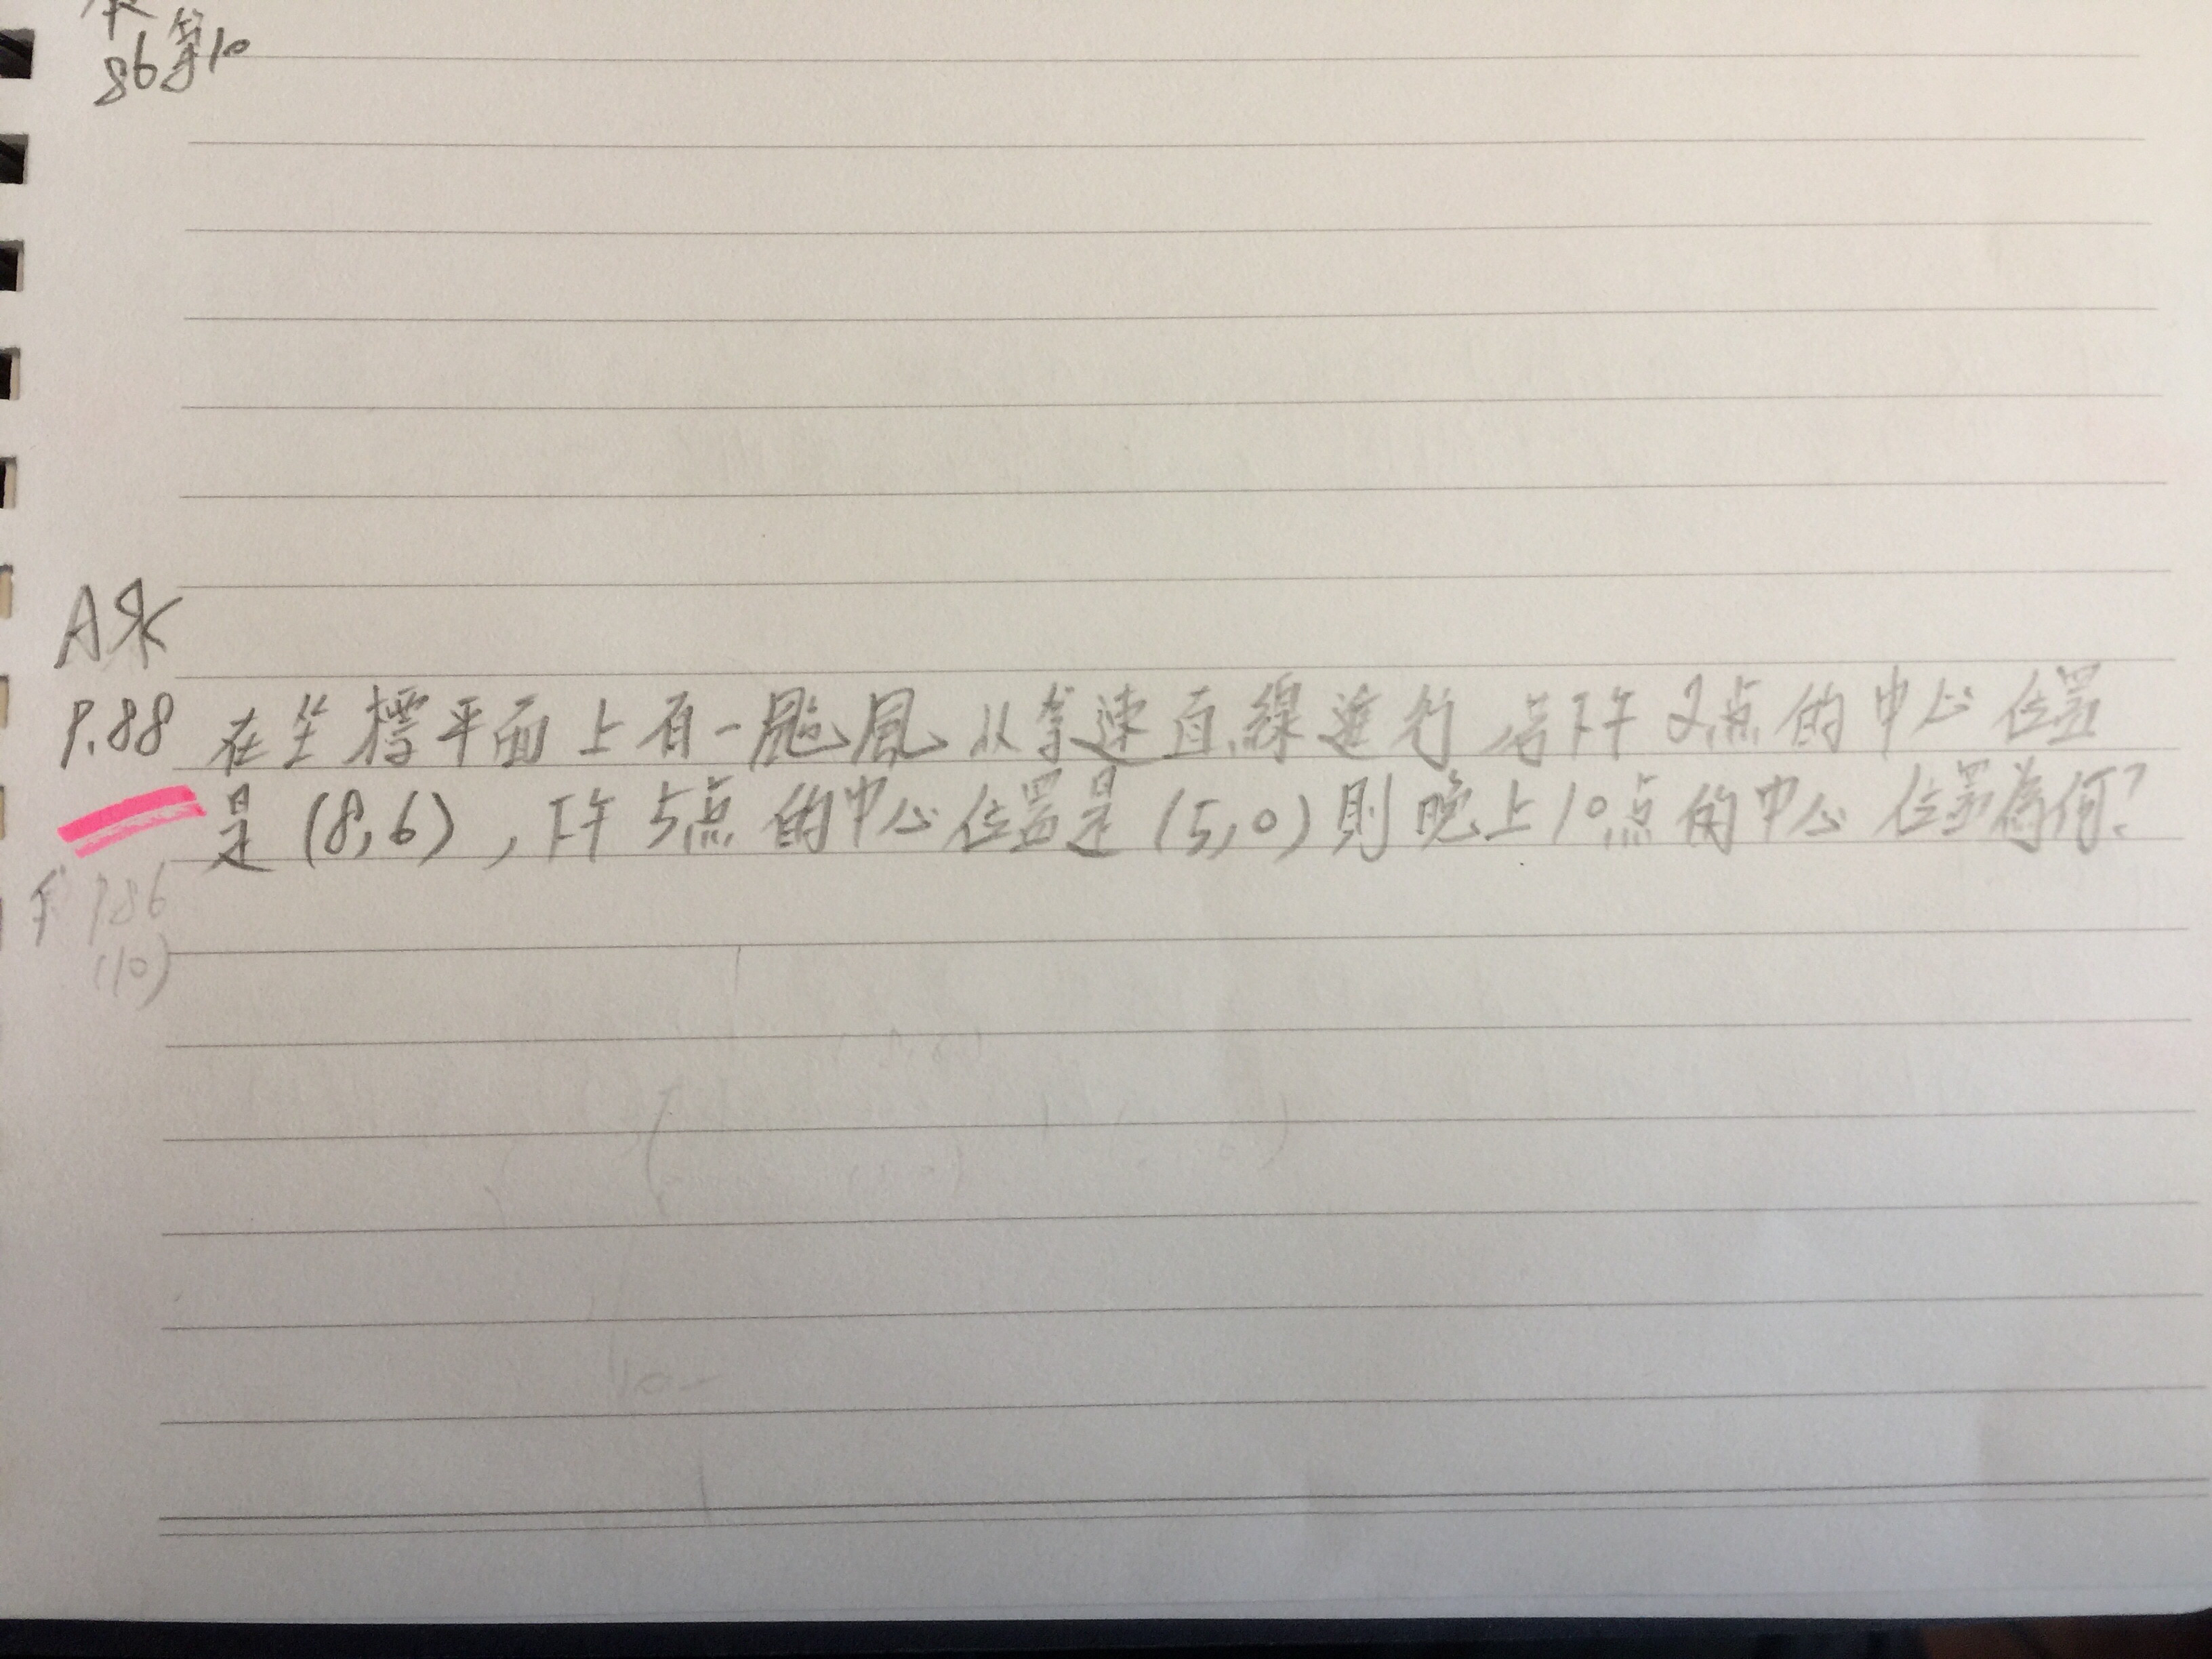 86 第10
Ask
P.88 在坐標平面上有一颱風以等速直線進行,若下午2点的中心位置
是(8,6),下午5点的中心位置是(5,0)則晚上10点的中心位置為何?
P.86
(10)